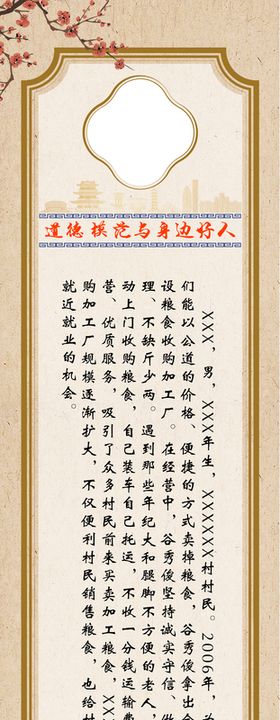 道德模范与身边好人
XXX，男，XXX年生，XXXXXX村村民。2006年，为
们能以公道的价格、便捷的方式卖掉粮食，谷秀俊拿出全
设粮食收购加工厂。在经营中，谷秀俊坚持诚实守信、
理、不缺斤少两。遇到那些年纪大和腿脚不方便的老人
动上门收购粮食，自己装车自己托运，不收一分钱运输费
营、优质服务，吸引了众多村民前来买卖加工粮食，XX
购加工厂规模逐渐扩大，不仅便利村民销售粮食，也给村
就近就业的机会。